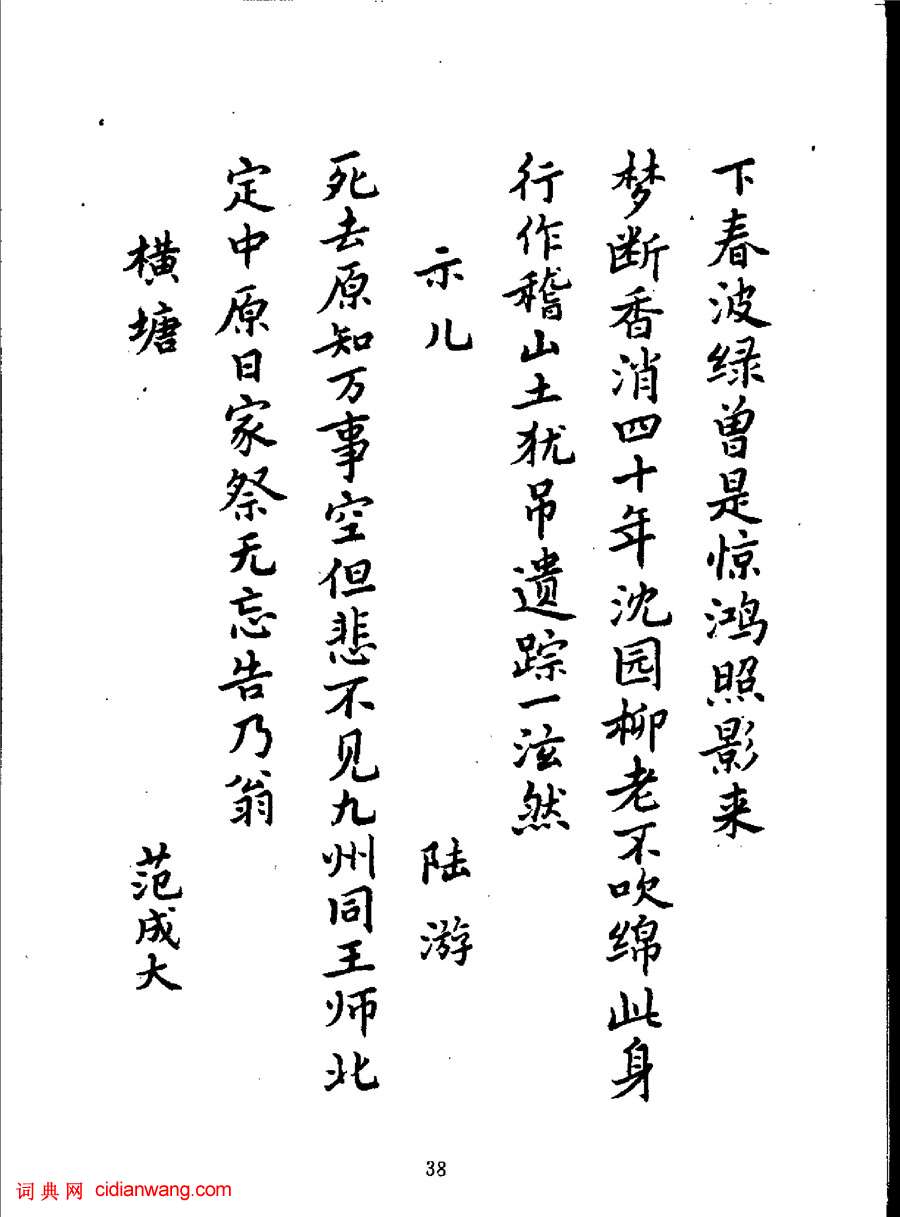 下春波绿曾是惊鸿照影来
梦断香消四十年沈园柳老不吹绵此身
行作稽山土犹吊遗踪一泫然
示儿 陆游
死去原知万事空但悲不见九州同王师北
定中原日家祭无忘告乃翁
横塘 范成大
38
词典网 cidianwang.com